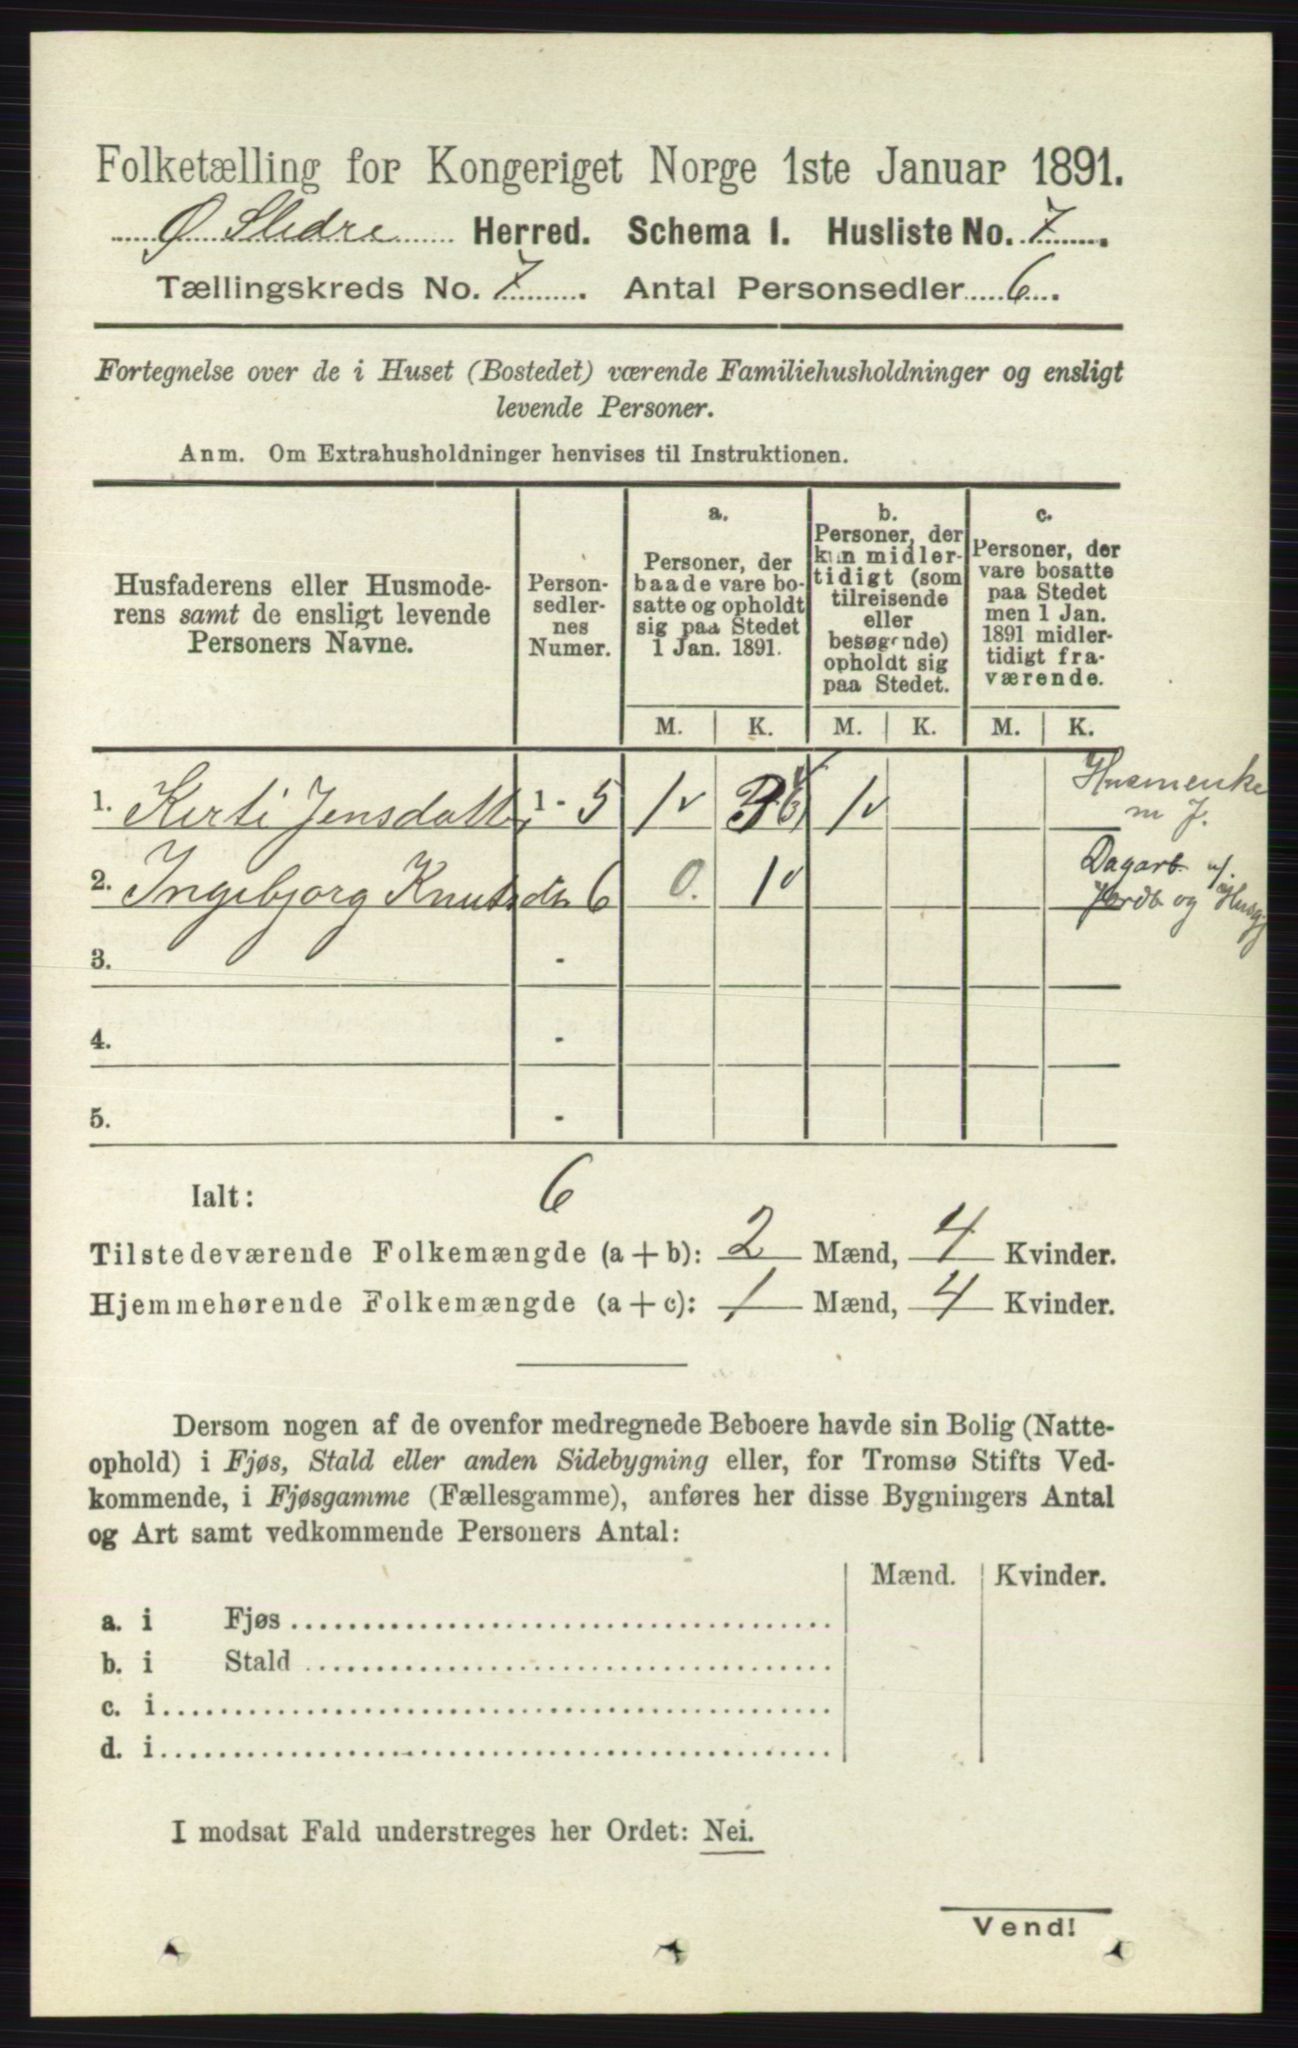 Folketælling for Kongeriget Norge 1ste Januar 1891.
Ø Slidre Herred. Schema I. Husliste No. 7.
Tællingskreds No. 7. Antal Personsedler 6.
Fortegnelse over de i Huset (Bostedet) værende Familiehusholdninger og ensligt
levende Personer.
Anm. Om Extrahusholdninger henvises til Instruktionen.
Husfaderens eller Husmode-
rens samt de ensligt levende
Personers Navne.
Person-
sedler-
nes
Numer.
a.
Personer, der
baade vare bo-
satte og opholdt
sig paa Stedet
1 Jan. 1891.
b.
Personer, der
kun midler-
tidigt (som
tilreisende
eller
besøgende)
opholdt sig
paa Stedet.
c.
Personer, der
vare bosatte
paa Stedet
men 1 Jan.
1891 midler-
tidigt fra-
værende.
M. K. M. K. M. K.
1. Kirti Jensdatt 1 - 5 1 1 Husmenke
m J.
2. Ingebjorg Knutsdtr 6 0. 1 Dagarb m/
Jordb og Husg
3. -
4. -
5. -
Ialt: 6
Tilstedeværende Folkemængde (a + b): 2 Mænd, 4 Kvinder.
Hjemmehørende Folkemængde (a + c): 1 Mænd, 4 Kvinder.
Dersom nogen af de ovenfor medregnede Beboere havde sin Bolig (Natte-
ophold) i Fjøs, Stald eller anden Sidebygning eller, for Tromsø Stifts Ved-
kommende, i Fjøsgamme (Fællesgamme), anføres her disse Bygningers Antal
og Art samt vedkommende Personers Antal:
Mænd. Kvinder.
a. i Fjøs
b. i Stald
c. i
d. i
I modsat Fald understreges her Ordet: Nei.
Vend!